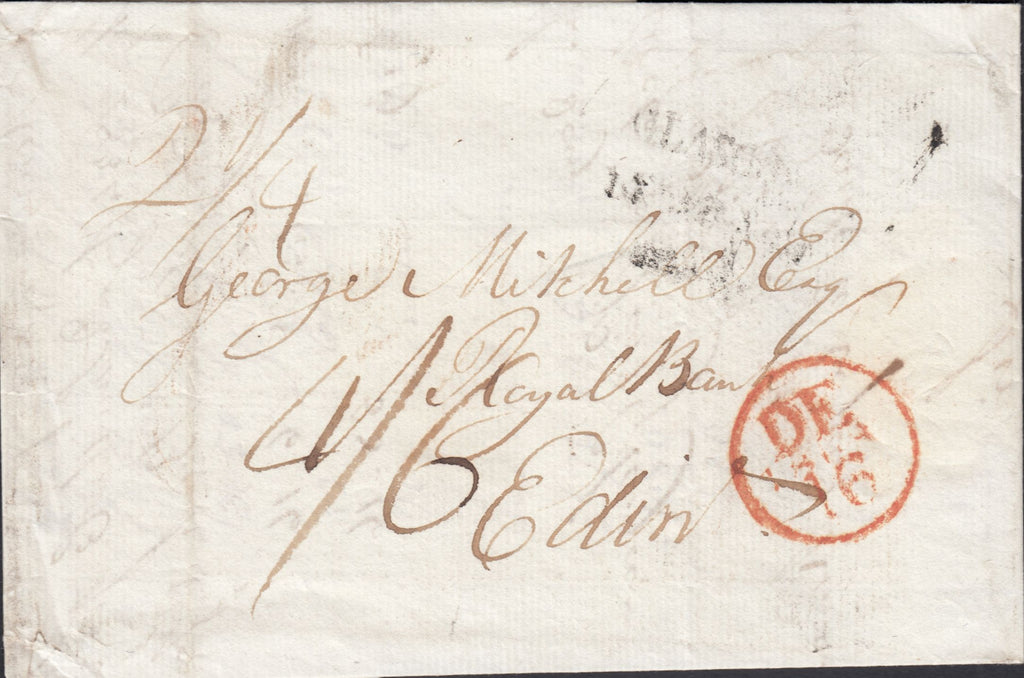 2/4
George Mitchell Esqr
4/6 Royal Bank
Edinr
DE
16